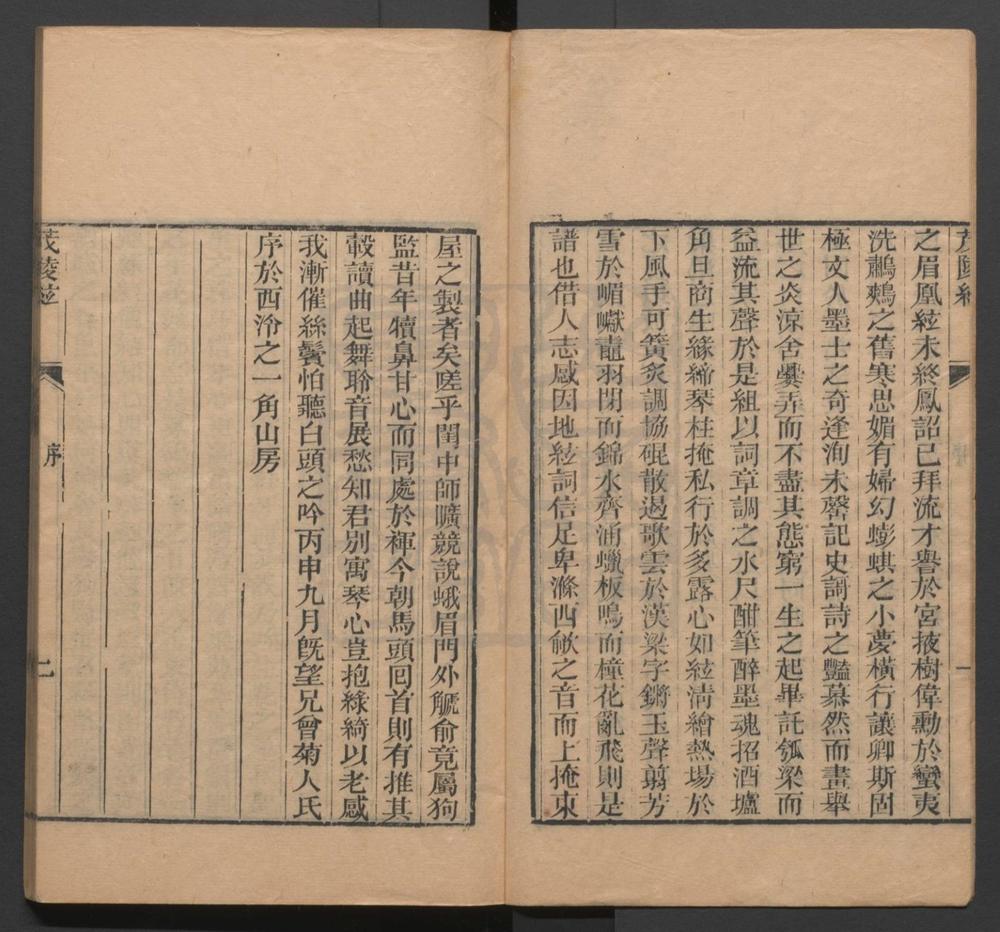 之眉凰絃未終鳳詔已拜流才譽於宮掖樹偉勳於蠻夷
洗鷫鷞之舊寒思媚有婦幻蟛蜞之小夢橫行讓卿斯固
極文人墨士之奇逢洵未罄記史謌詩之豔慕然而畫舉
世之炎涼舍爨弄而不盡其態窮一生之起畢託瓠梁而
益流其聲於是組以詞章調之水尺酣筆醉墨魂招酒壚
角旦商生緣締琴柱掩私行於多露心如絃清繪熱場於
下風手可簧炙調協硍散遏歌雲於漢梁字鏘玉聲翦芳
雪於嵋巘龍羽閉而錦水齊涌蠟板鳴而橦花亂飛則是
譜也借人志感因地絃詞信足卑滌西歈之音而上掩東
茂陵絃
序
一
屋之製者矣嗟乎閨中師曠競說蛾眉門外觽俞竟屬狗
監昔年犢鼻甘心而同處於褌今朝馬頭回首則有推其
轂讀曲起舞聆音展愁知君別寓琴心豈抱綠綺以老感
我漸催絲鬢怕聽白頭之吟丙申九月旣望兄曾菊人氏
序於西泠之一角山房
茂陵絃
序